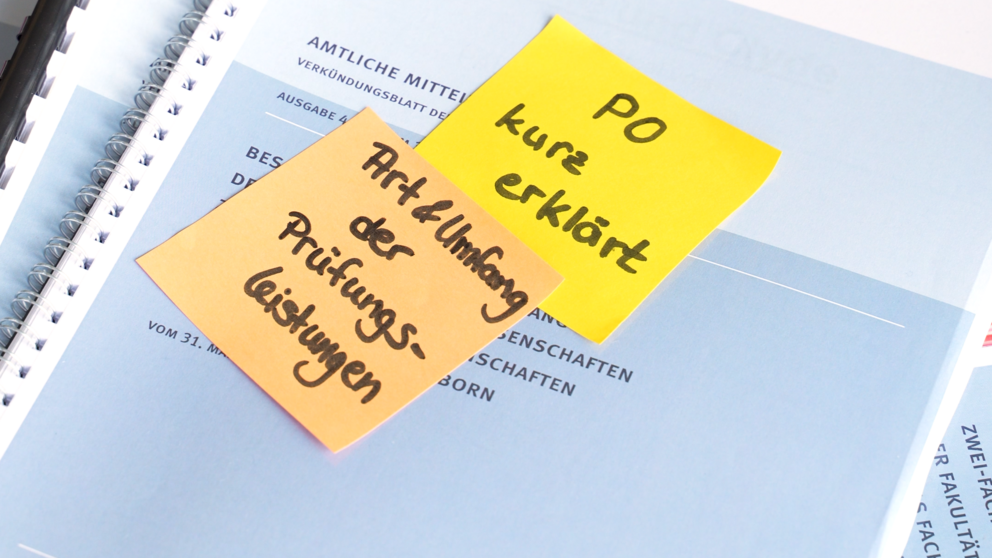 AMTLICHE MITTEL
VERKÜNDUNGSBLATT DE
AUSGABE 4
BES
DE
PO
kurz
erklärt
Art & Umfang
der
Prüfungs-
leistungen
ANG
SENSCHAFTEN
NSCHAFTEN
BORN
VOM 31. MA
ZWEI-FAC
ER FAKULTÄT
S FAC